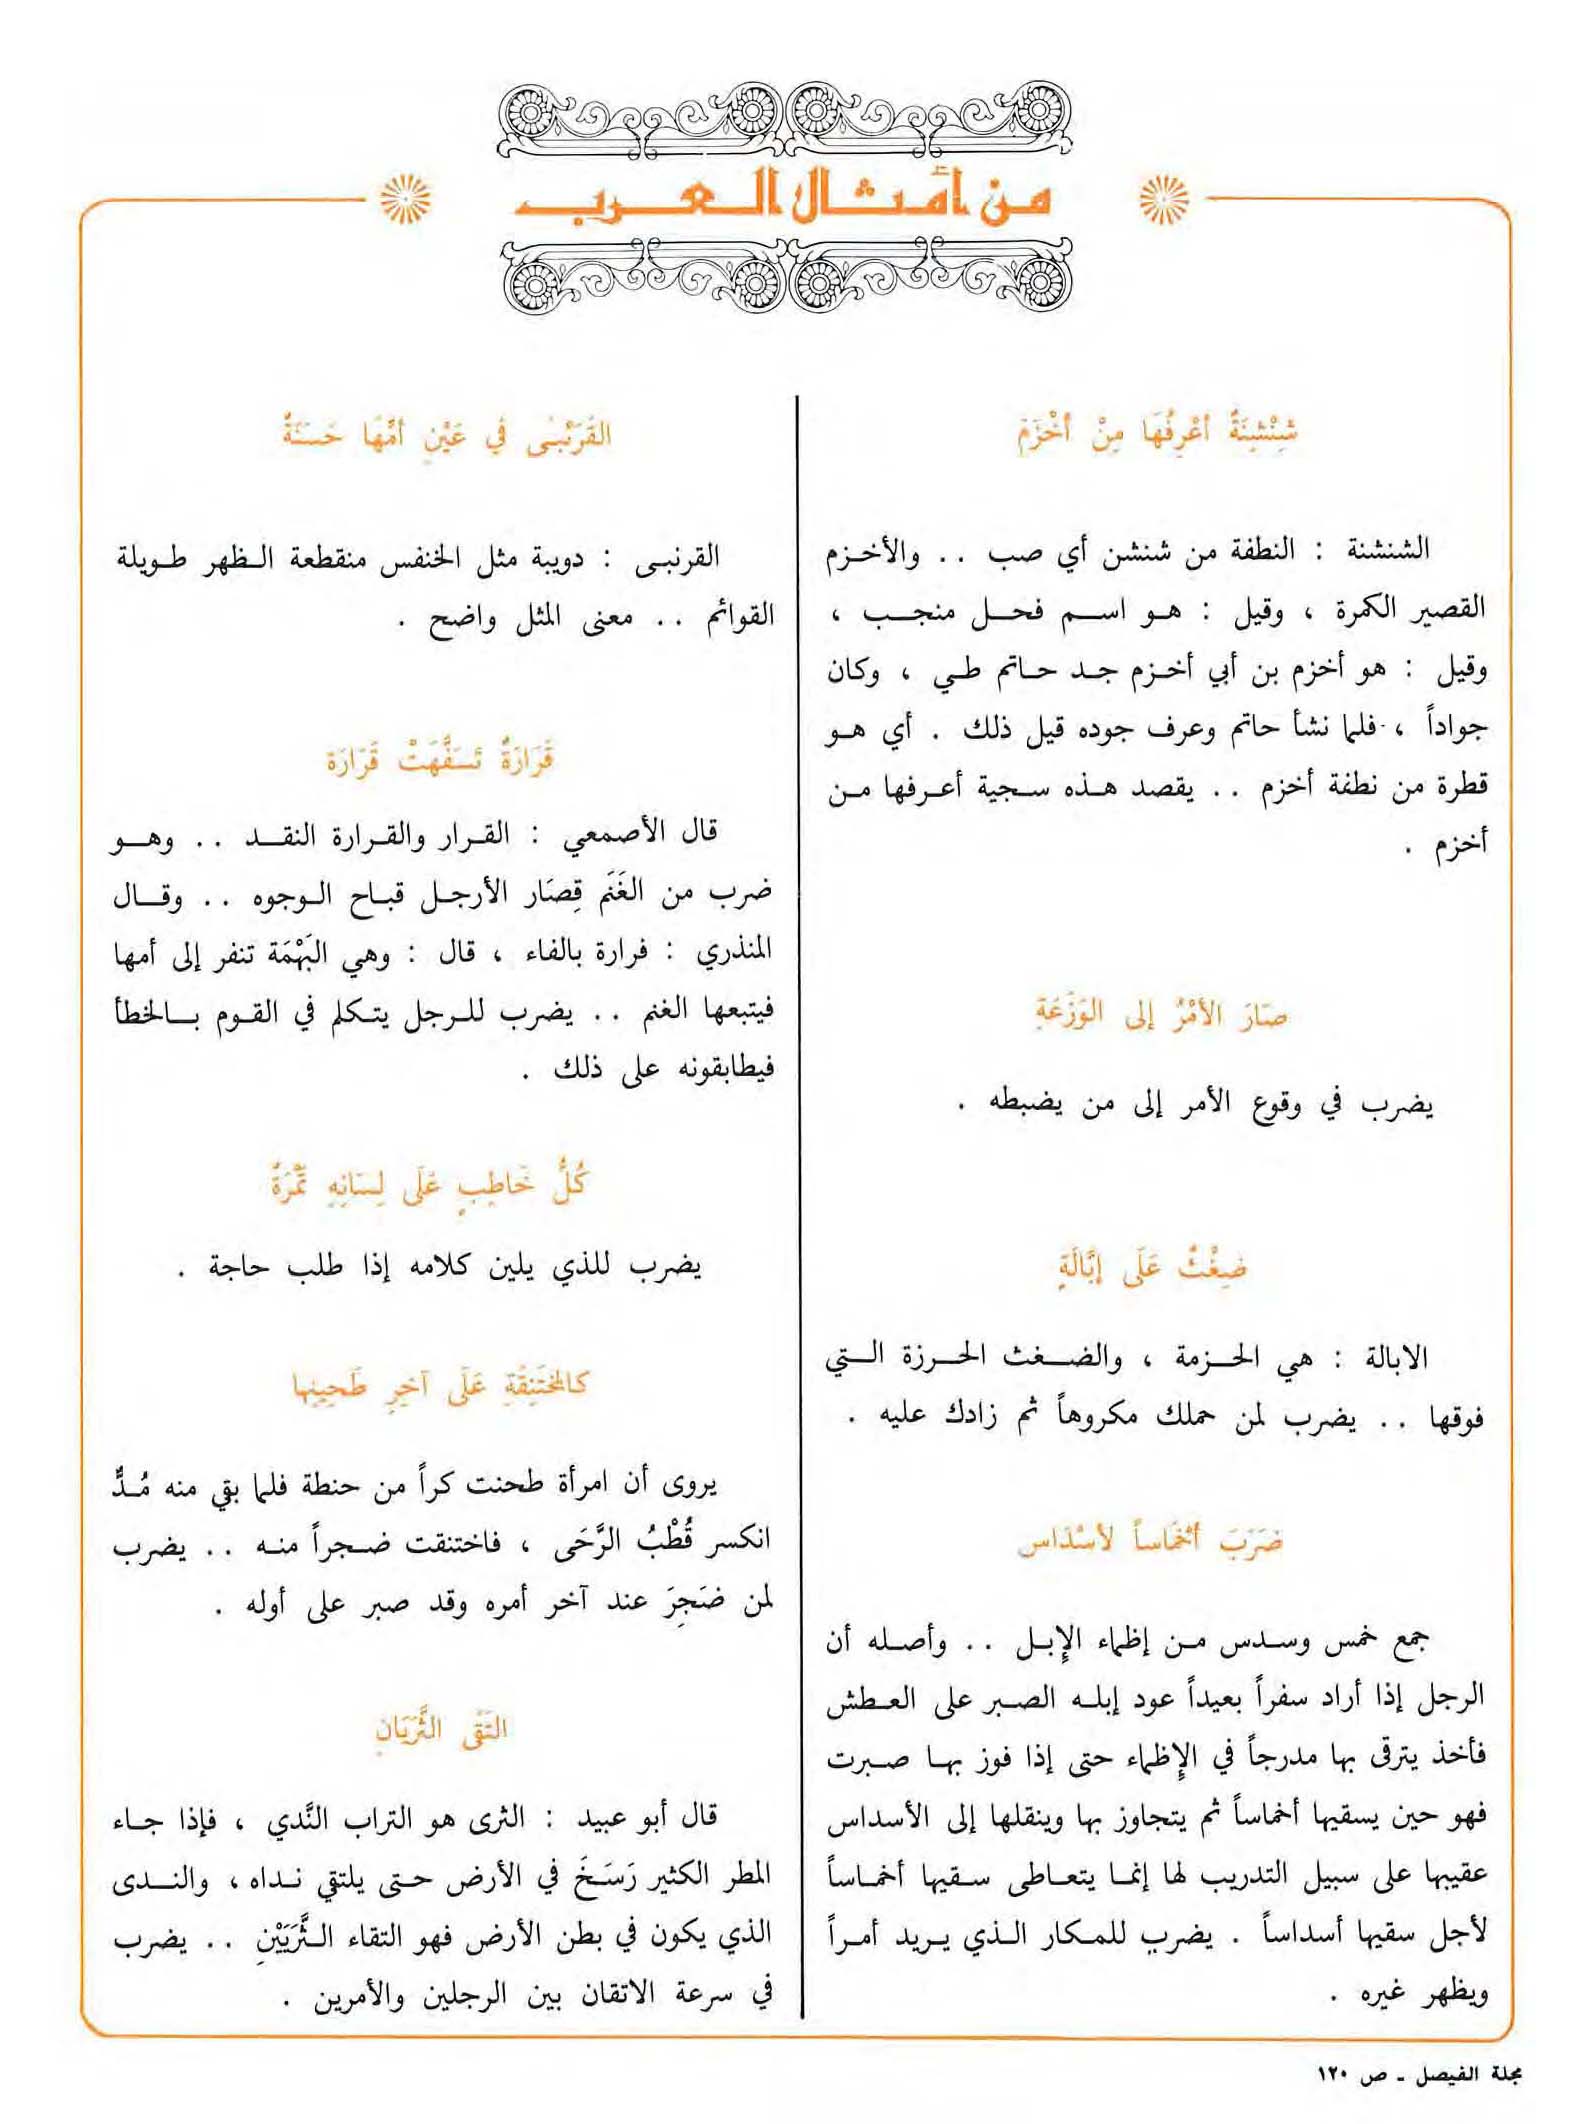 من أمثال العرب
شِنْشِنَةٌ أَعْرِفُهَا مِنْ أَخْزَمَ
الشنشنة : النطفة من شنشن أي صب . . والأخزم
القصير الكمرة ، وقيل : هو اسم فحل منجب ،
وقيل : هو أخزم بن أبي أخزم جد حاتم طي ، وكان
جواداً ، فلما نشأ حاتم وعرف جوده قيل ذلك . أي هو
قطرة من نطفة أخزم . . يقصد هذه سجية أعرفها من
أخزم .
صَارَ الأَمْرُ إلى الوَزَعَةِ
يضرب في وقوع الأمر إلى من يضبطه .
ضِغْثٌ عَلَى إبَّالَةٍ
الابالة : هي الحزمة ، والضغث الحرزة التي
فوقها . . يضرب لمن حملك مكروهاً ثم زادك عليه .
ضَرَبَ أَخْمَاساً لأَسْدَاس
جمع خمس وسدس من إظماء الإِبل . . وأصله أن
الرجل إذا أراد سفراً بعيداً عود إبله الصبر على العطش
فأخذ يترقى بها مدرجاً في الإِظماء حتى إذا فوز بها صبرت
فهو حين يسقيها أخماساً ثم يتجاوز بها وينقلها إلى الأسداس
عقيبها على سبيل التدريب لها إنما يتعاطى سقيها أخماساً
لأجل سقيها أسداساً . يضرب للمكار الذي يريد أمراً
ويظهر غيره .
القَرَنْبَى في عَيْنِ أمِّهَا حَسَنَةٌ
القرنبى : دويبة مثل الخنفس منقطعة الظهر طويلة
القوائم . . معنى المثل واضح .
قَرَارَةٌ تَسَفَّهَتْ قَرَارَة
قال الأصمعي : القرار والقرارة النقد . . وهو
ضرب من الغَنَم قِصَار الأرجل قباح الوجوه . . وقال
المنذري : فرارة بالفاء ، قال : وهي البَهْمَة تنفر إلى أمها
فيتبعها الغنم . . يضرب للرجل يتكلم في القوم بالخطأ
فيطابقونه على ذلك .
كُلُّ خَاطِبٍ عَلَى لِسَانِهِ تَمْرَةٌ
يضرب للذي يلين كلامه إذا طلب حاجة .
كالمُخْتَنِقَةِ عَلَى آخِرِ طَحِينِها
يروى أن امرأة طحنت كراً من حنطة فلما بقي منه مُدٌّ
انكسر قُطْبُ الرَّحَى ، فاختنقت ضجراً منه . . يضرب
لمن ضَجِرَ عند آخر أمره وقد صبر على أوله .
التَقَى الثَّرَيَانِ
قال أبو عبيد : الثرى هو التراب النَّدي ، فإذا جاء
المطر الكثير رَسَخَ في الأرض حتى يلتقي نداه ، والندى
الذي يكون في بطن الأرض فهو التقاء الثَّرَيَيْنِ . . يضرب
في سرعة الاتقان بين الرجلين والأمرين .
مجلة الفيصل - ص ١٢٠